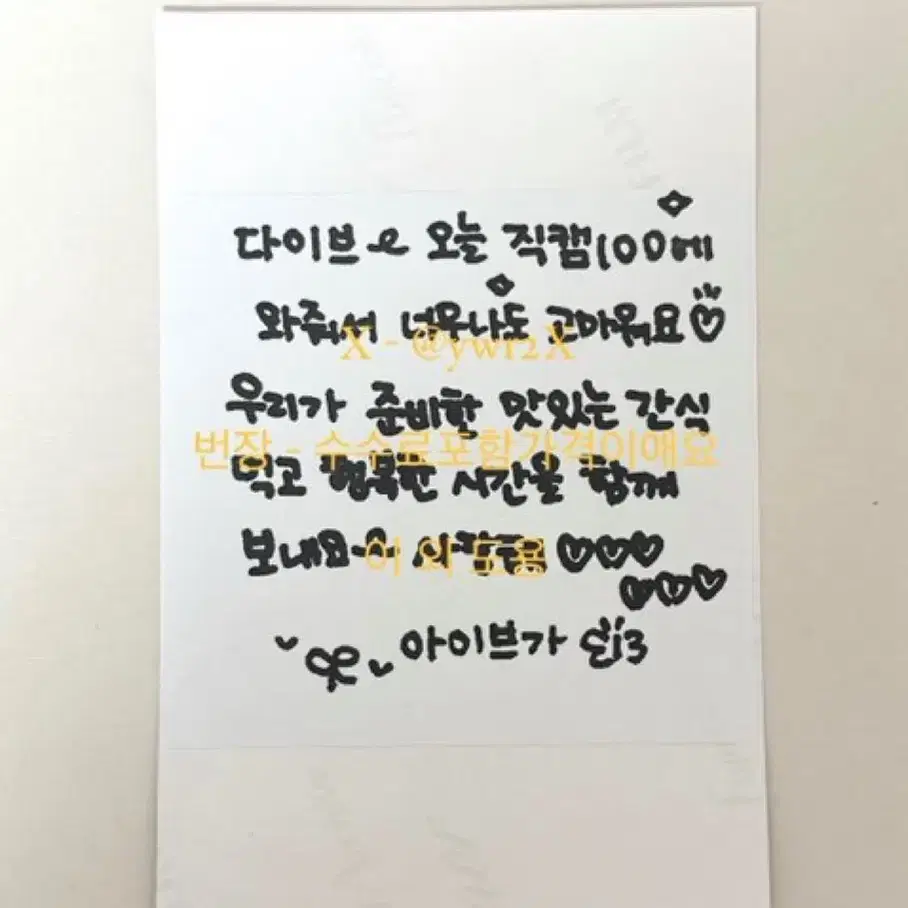 다이브 오늘 직캠100에
와줘서 너무나도 고마워요
X - @ywr2X
우리가 준비한 맛있는 간식
번장 - 수수료포함가격이애요
먹고 행복한 시간을 함께
보내요
이 외 도용
아이브가